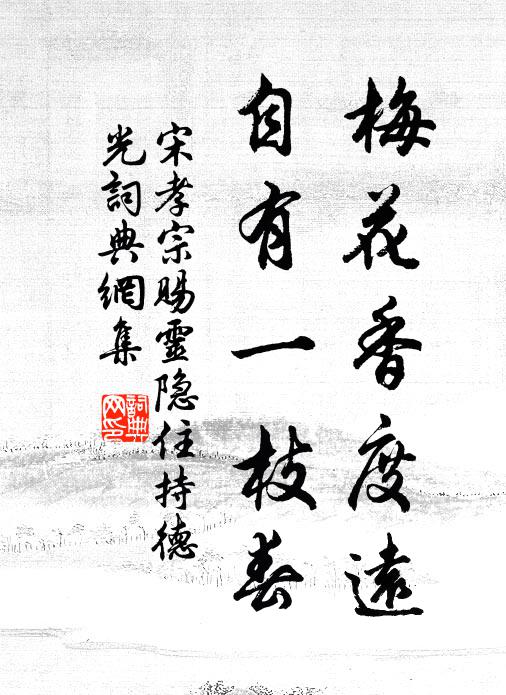 梅花香度遠
自有一枝春
宋孝宗賜靈隐住持德
光詞典網集
詞典
网印